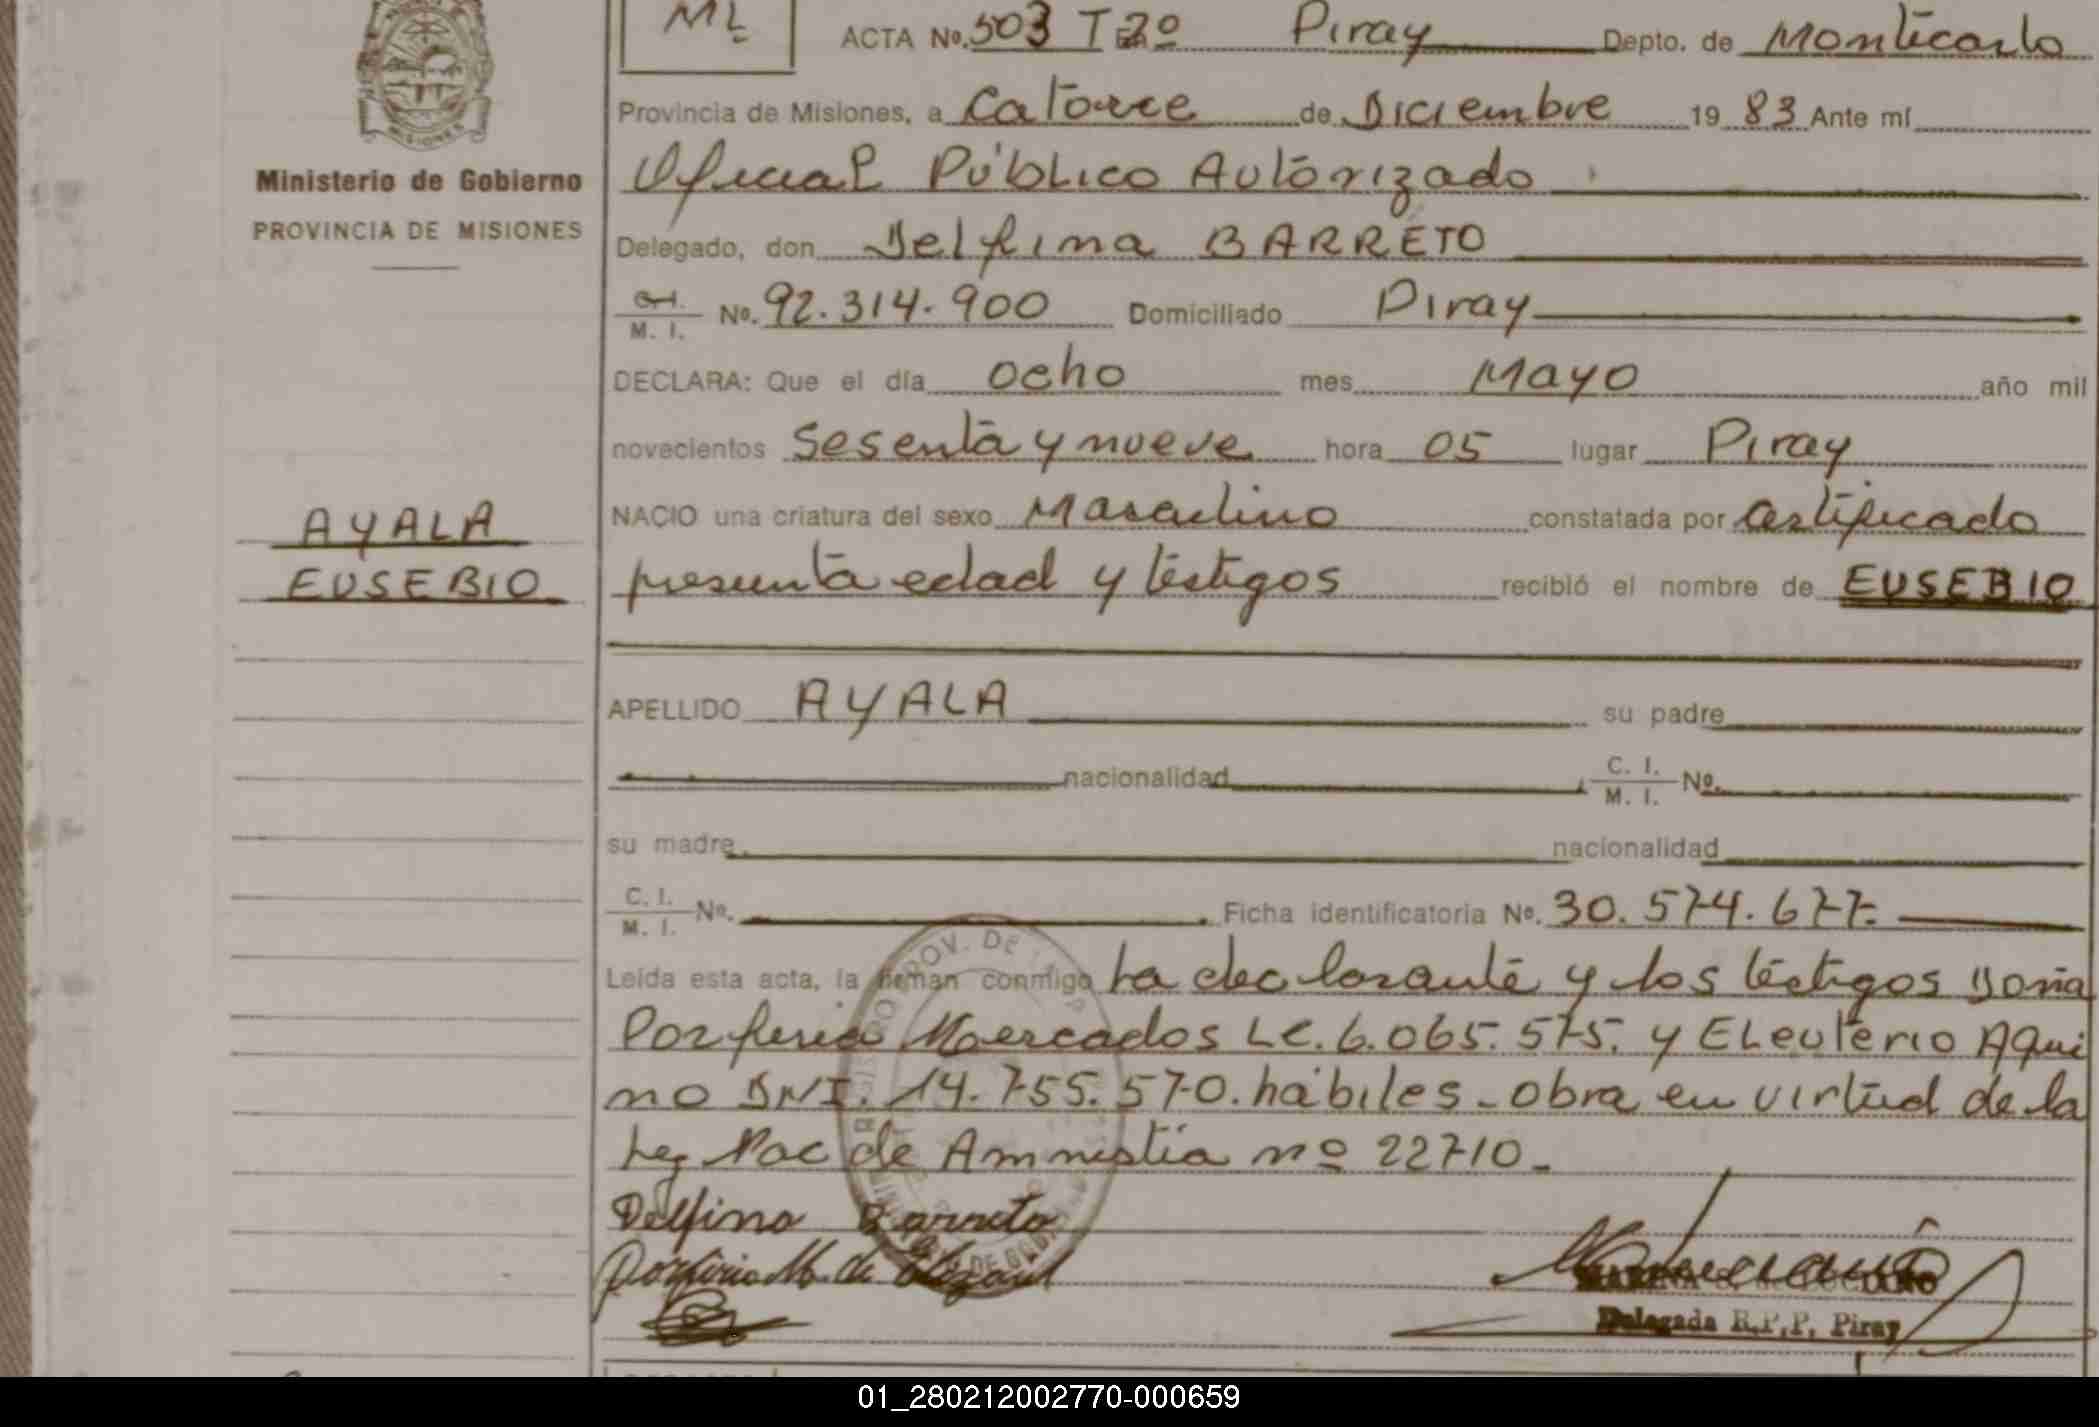 ML
ACTA No. 503 T 2º Piray Depto. de Montecarlo
Provincia de Misiones, a Catorce de Diciembre 19 83 Ante mí
Oficial Público Autorizado
Ministerio de Gobierno
PROVINCIA DE MISIONES
Delegado, don Delfina BARRETO
C. I. / M. I. Nº. 92.314.900 Domiciliado Piray
DECLARA: Que el día ocho mes Mayo año mil
novecientos Sesenta y nueve hora 05 lugar Piray
NACIO una criatura del sexo Masculino constatada por certificado
presunta edad y testigos recibió el nombre de EUSEBIO
AYALA
EUSEBIO
APELLIDO AYALA su padre
nacionalidad C. I. / M. I. Nº.
su madre nacionalidad
C. I. / M. I. Nº. Ficha identificatoria Nº. 30.574.677.
Leída esta acta, la firman conmigo La declarante y los testigos Doña
Porfiria Mercados LC. 6.065.575. y Eleuterio Aqui
no DNI. 14.755.570. hábiles - obra en virtud de la
Ley Nac de Amnistia nº 22710 -
Delfina Barreto
Porfiria M. de
Delegada R.P.P. Piray
01_280212002770-000659